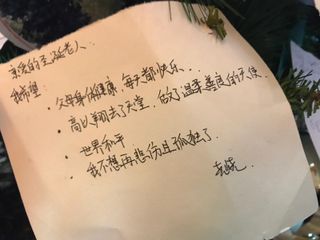 亲爱的圣诞老人:
我希望:
· 父母身体健康,每天都快乐..
· 高以翔去了天堂,做了温柔善良的天使.
· 世界和平
· 我不想再悲伤且孤独了.